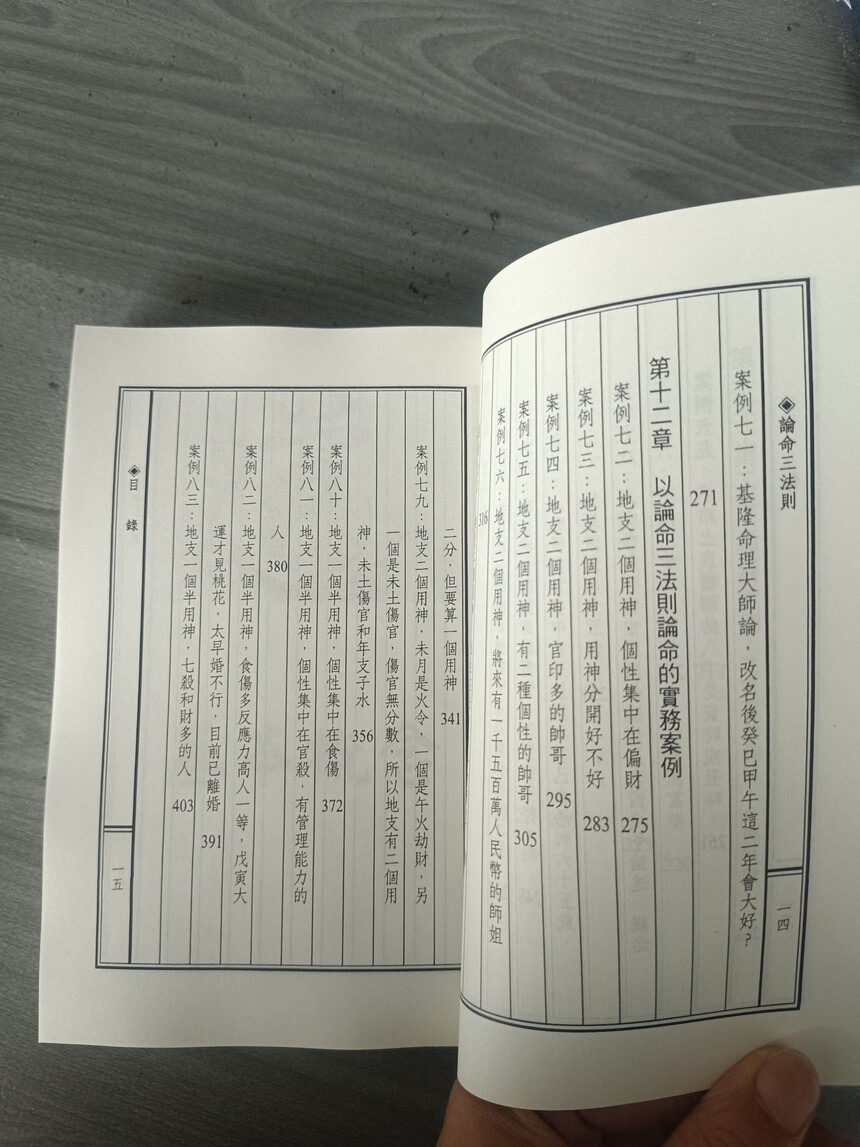 ◈論命三法則
一四
案例七一：基隆命理大師論，改名後癸巳甲午這二年會大好？
271
第十二章　以論命三法則論命的實務案例
案例七二：地支二個用神，個性集中在偏財　275
案例七三：地支二個用神，用神分開好不好　283
案例七四：地支二個用神，官印多的帥哥　295
案例七五：地支二個用神，有二種個性的帥哥　305
案例七六：地支二個用神，將來有一千五百萬人民幣的師姐
316
二分，但要算一個用神　341
案例七九：地支二個用神，未月是火令，一個是午火劫財，另
一個是未土傷官，傷官無分數，所以地支有二個用
神，未土傷官和年支子水　356
案例八十：地支一個半用神，個性集中在食傷　372
案例八一：地支一個半用神，個性集中在官殺，有管理能力的
人　380
案例八二：地支一個半用神，食傷多反應力高人一等，戊寅大
運才見桃花，太早婚不行，目前已離婚　391
案例八三：地支一個半用神，七殺和財多的人　403
◈目　錄
一五